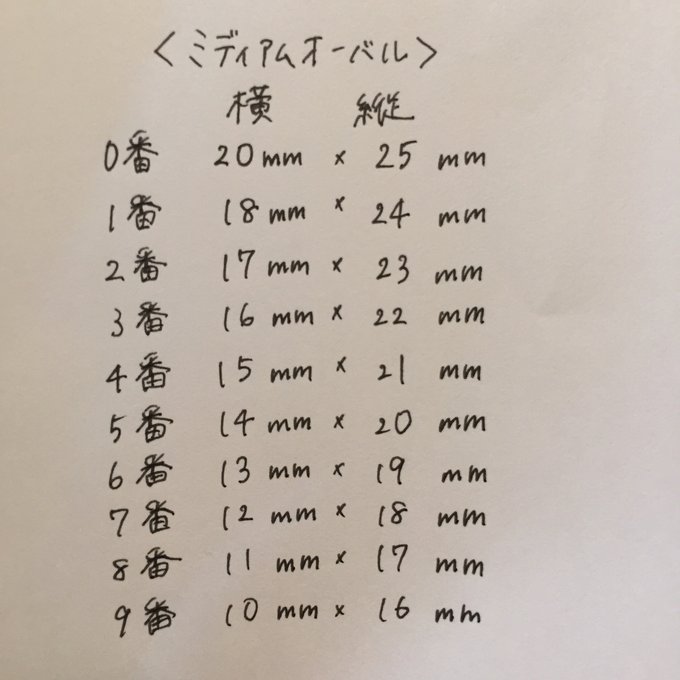 <ミディアムオーバル>
横 縦
0番 20mm × 25 mm
1番 18mm × 24 mm
2番 17mm × 23 mm
3番 16 mm × 22 mm
4番 15 mm × 21 mm
5番 14 mm × 20 mm
6番 13 mm × 19 mm
7番 12 mm × 18 mm
8番 11 mm × 17 mm
9番 10 mm × 16 mm